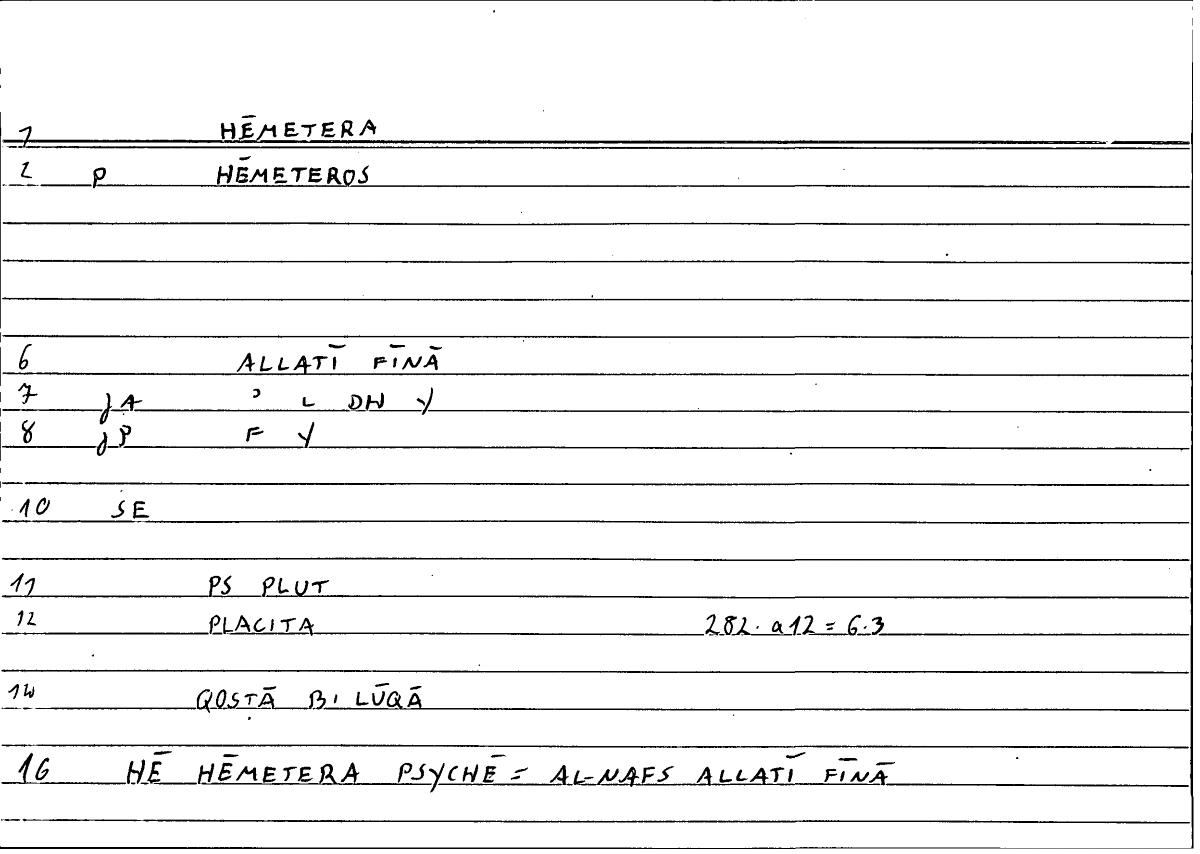 1 HĒMETERA
2 P HĒMETEROS
6 ALLATĪ FĪNĀ
7 jA ʾ L DH Y
8 jP F Y
10 SE
11 PS PLUT
12 PLACITA 282. a12 = 6.3
14 QOSṬĀ B. LŪQĀ
16 HĒ HĒMETERA PSYCHĒ = AL-NAFS ALLATĪ FĪNĀ